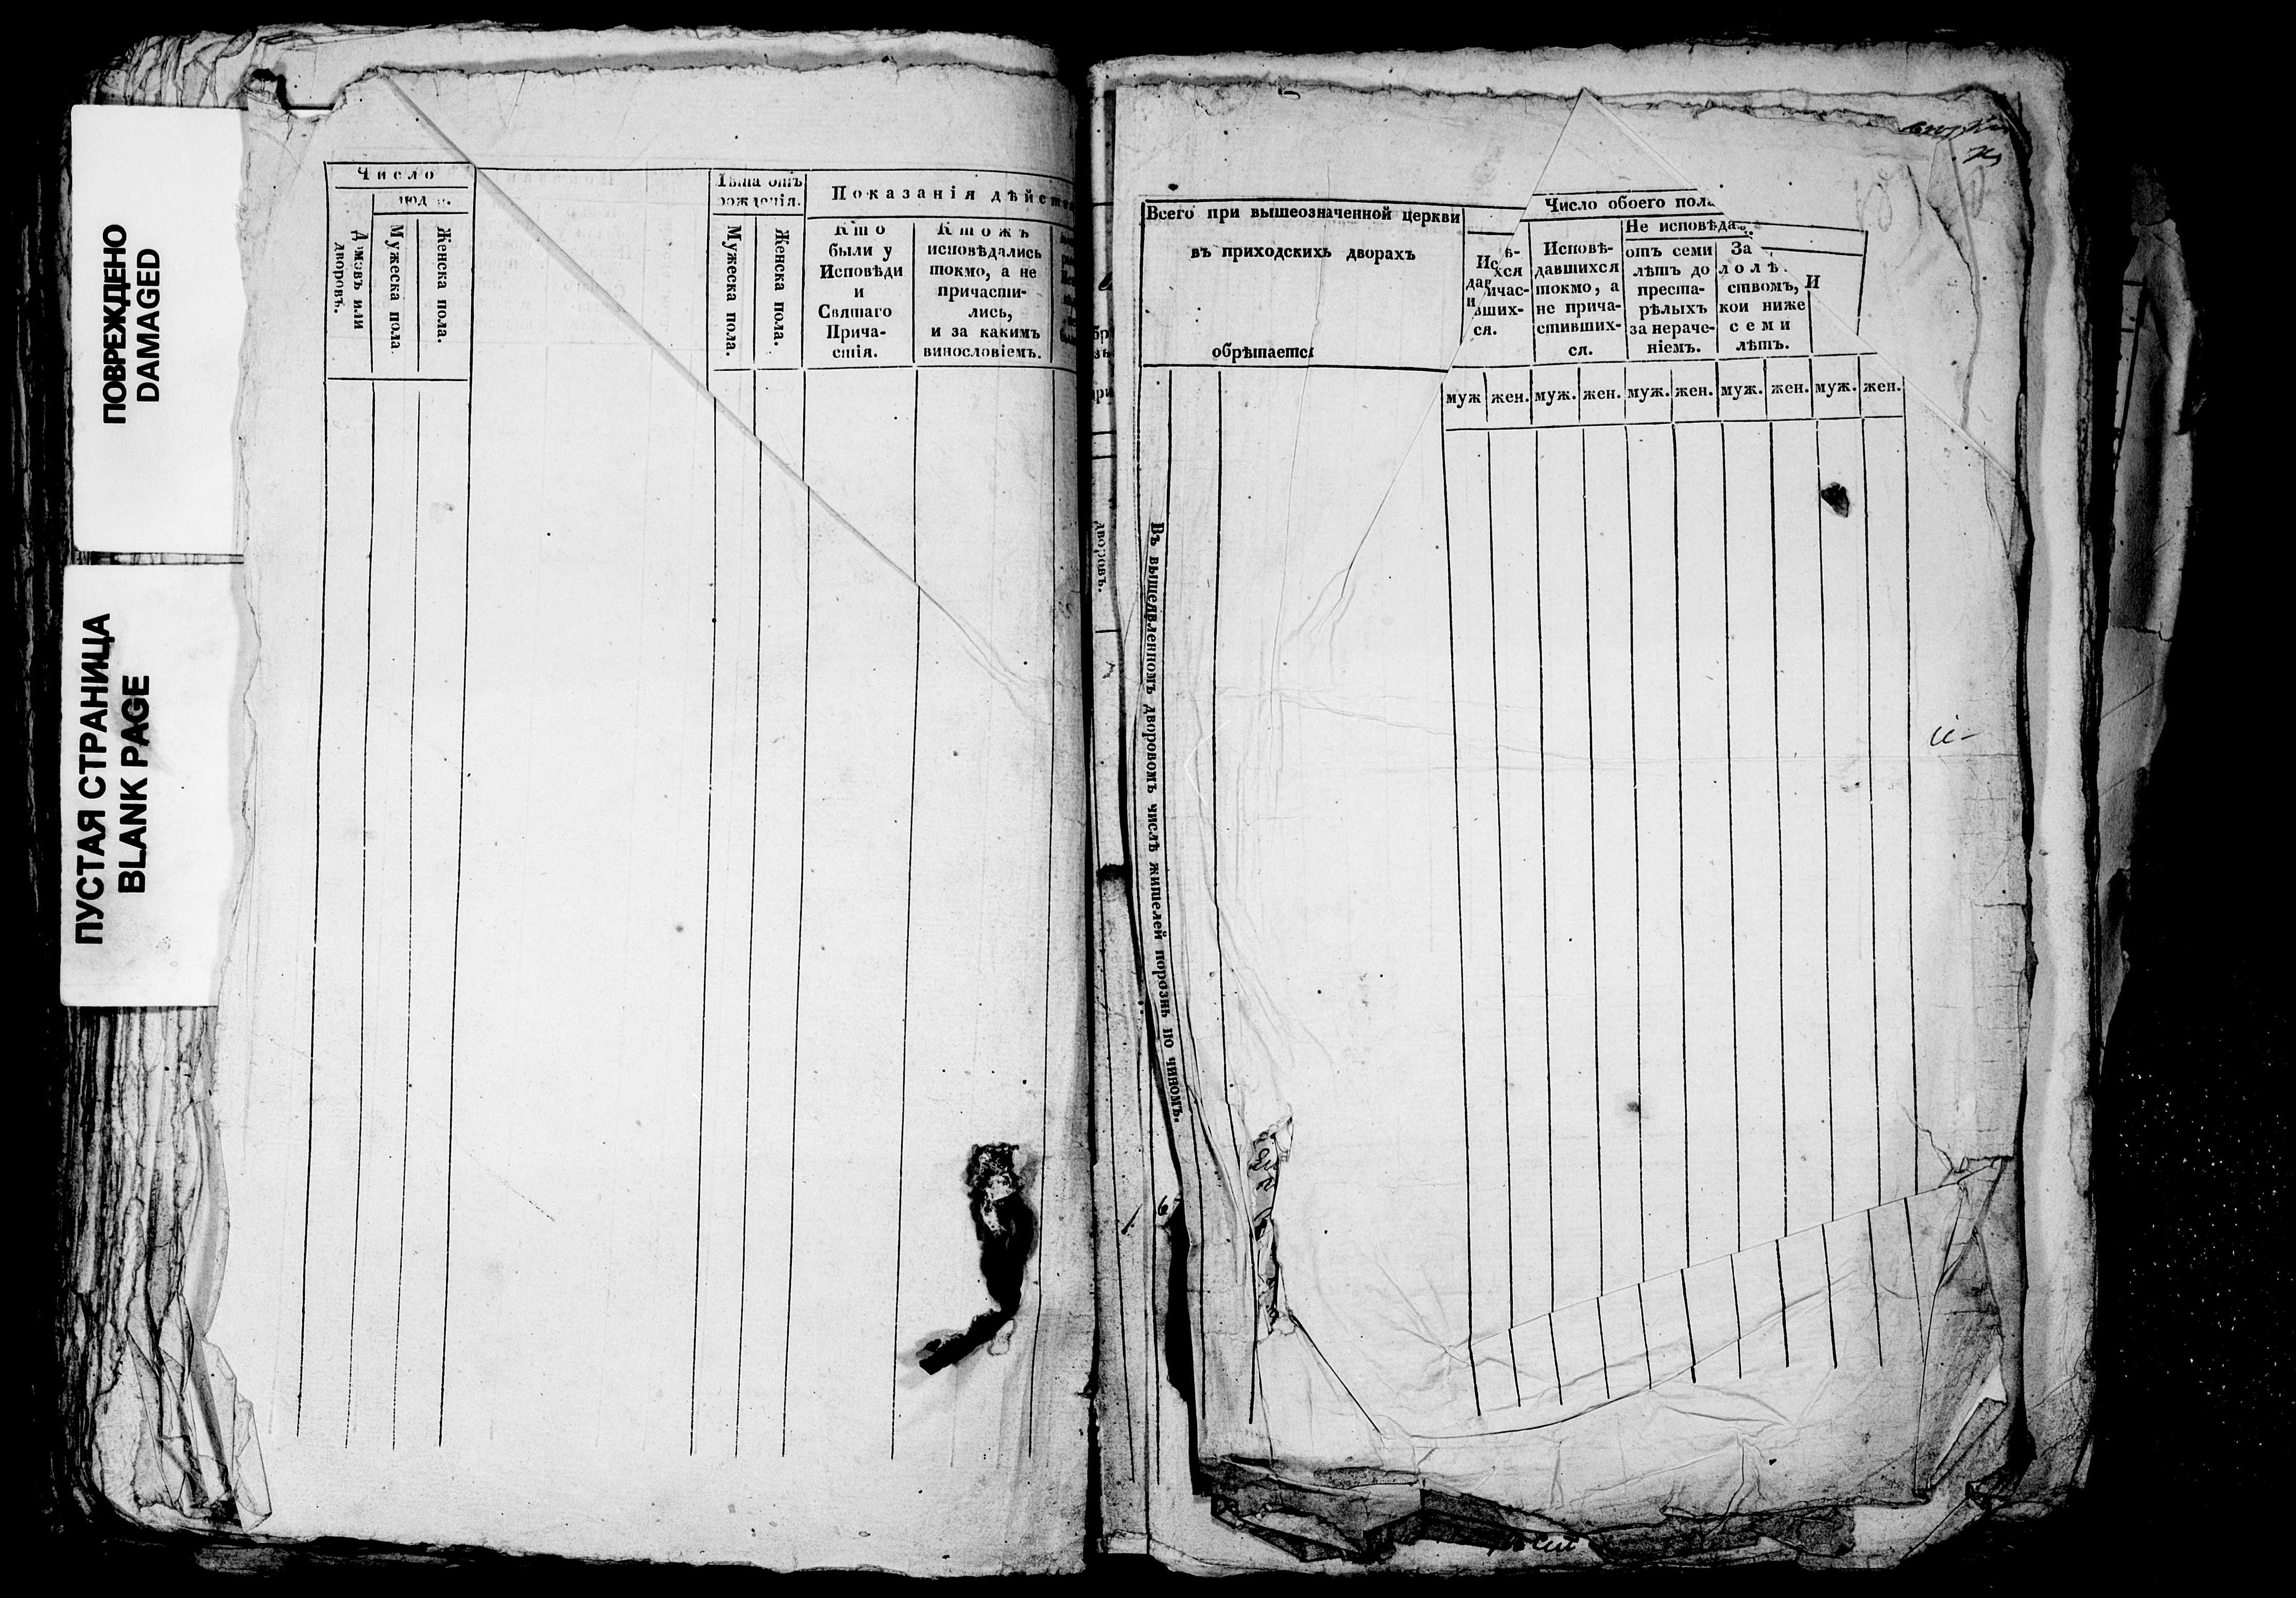 ПОВРЕЖДЕНО
DAMAGED
ПУСТАЯ СТРАНИЦА
BLANK PAGE
Число
Домовъ или
дворовъ.
Мужеска пола.
Женска пола.
рожденія.
Мужеска пола.
Женска пола.
Показанія дѣйст
Кто
были у
Исповѣди
и
Святаго
Прича-
стія.
Ктожъ
исповѣдались
токмо, а не
причасти-
лись,
и за какимъ
винословіемъ.
дворовъ.
Всего при вышеозначенной церкви
въ приходскихъ дворахъ
обрѣтается
Въ вышеявленномъ дворовомъ числѣ жителей порознь по чиномъ.
Число обоего пола
Не исповѣда
Исповѣ-
давшихся
токмо, а
не прича-
стивших-
ся.
отъ семи
лѣтъ до
преста-
рѣлыхъ
за нераче-
ніемъ.
За
лолѣ
ствомъ,
кои ниже
семи
лѣтъ.
И
муж жен. муж. жен. муж. жен. муж. жен. муж. жен.